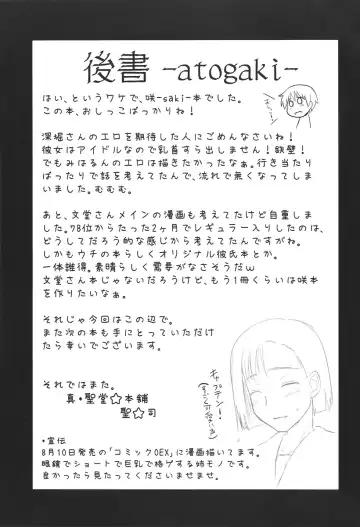 後書 -atogaki-
はい、というワケで、咲-saki-本でした。
この本、おしっこばっかりね！
深堀さんのエロを期待した人にごめんなさいね！
彼女はアイドルなので乳首すら出しません！鉄壁！
でもみはるんのエロは描きたかったなぁ。行き当たり
ばったりで話を考えてたんで、流れで無くなってしま
いました。むむむ。
あと、文堂さんメインの漫画も考えてたけど自重しま
した。78位からたった2ヶ月でレギュラー入りしたのは、
どうしてだろう的な感じから考えてたんですがね。
しかもウチの本らしくオリジナル彼氏本とか。
一体誰得。素晴らしく需要がなさそうだw
文堂さん本じゃないだろうけど、もう1冊くらいは咲本
を作りたいなぁ。
それじゃ今回はこの辺で。
また次の本も手にとっていただけ
たら幸いでございます。
それではまた。
真・聖堂☆本舗
聖☆司
キャプテン！
・宣伝
8月10日発売の「コミックOEX」に漫画描いてます。
眼鏡でショートで巨乳で格ゲする姉モノです。
良かったら見たってくださいませませ。